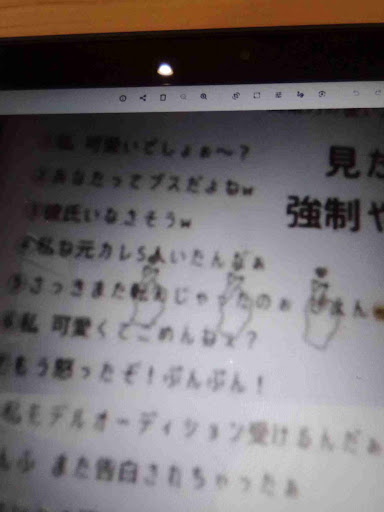 見た
強制や
①私 可愛いでしょぉ〜?
②あなたってブスだよねw
③彼氏いなさそうw
④私ね元カレ5人いたんなぁ
⑤さっきまた転んじゃったのぉ
⑥私 可愛くてごめんねぇ?
もう怒ったぞ!ぷんぷん!
私モデルオーディション受けるんだぁ
また告白されちゃったぁ